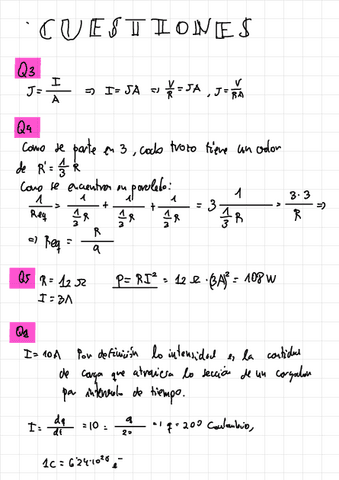 CUESTIONES
Q3
J = I/A => I = JA => V/R = JA, J = V/RA
Q4
Como se parte en 3, cada trozo tiene un valor
de R' = 1/3 R
Como se encuentran en paralelo:
1/Req = 1/(1/3 R) + 1/(1/3 R) + 1/(1/3 R) = 3 1/(1/3 R) = 3·3/R =>
=> Req = R/9
Q5 R = 12 Ω P = RI² = 12 Ω · (3A)² = 108 W
I = 3A
Q1
I = 10A Por definición la intensidad es la cantidad
de carga que atraviesa la sección de un
por intervalo de tiempo.
I = dq/dt = 10 = q/20 => q = 200 Coulombio,
1C = 6'24·10 e⁻